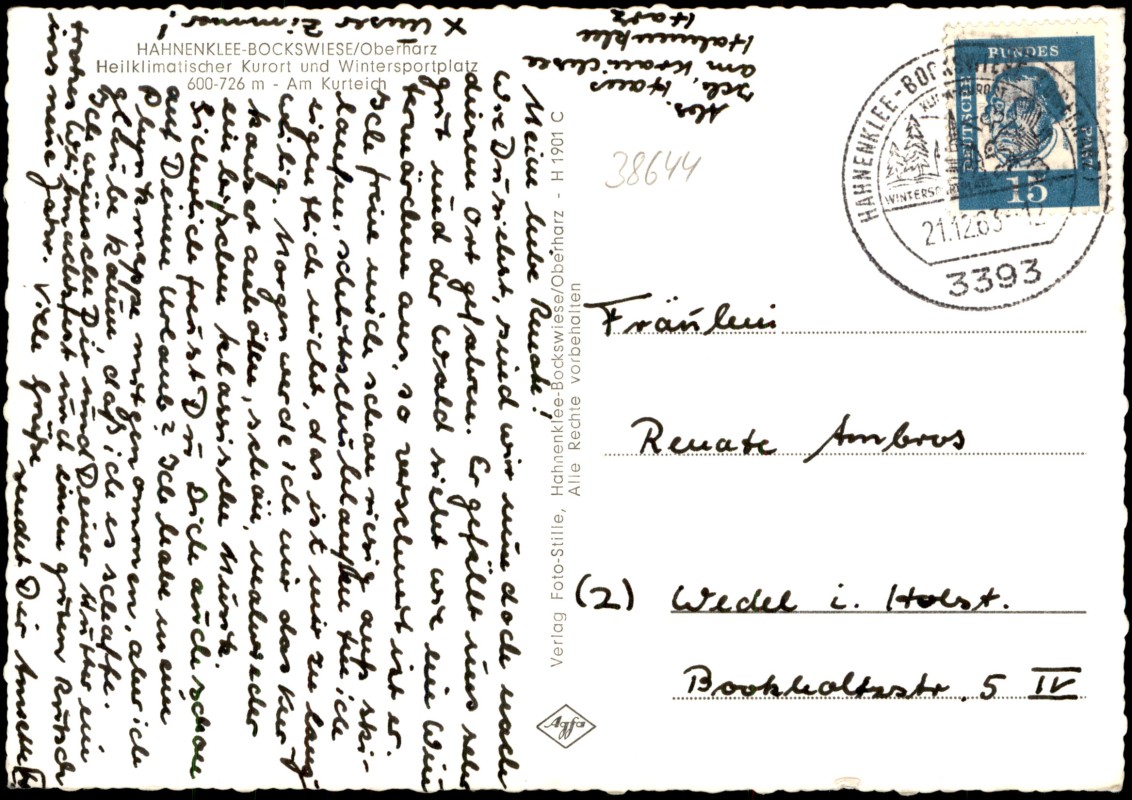 HAHNENKLEE-BOCKSWIESE/Oberharz
Heilklimatischer Kurort und Wintersportplatz
600-726 m - Am Kurteich
X Unser Zimmer!
Abs.
Haus
am Kranichsee
Hahnenklee
Harz
Meine liebe Renate!
Wie Du siehst, sind wir nun doch nach
diesem Ort gefahren. Er gefällt uns sehr
gut und der Wald sieht wie ein Win-
termärchen aus, so verschneit ist er.
Ich freue mich schon riesig aufs Ski-
laufen, schlittschuhlaufen tue ich
eigentlich nicht, das ist mir zu lang-
weilig. Morgen werde ich mir das Kur-
konzert anhören, schön, mal wieder
ein bißchen klassische Musik.
Sicherlich freust Du Dich auch schon
auf Deinen Urlaub? Ich habe meine
Malknappe mitgenommen, aber ich
glaube kaum, daß ich es schaffe.
Ich wünsche Dir und Deiner Mutter ein
frohes Weihnachtsfest und einen guten Rutsch
ins neue Jahr. Viele Grüße sendet Dir
Verlag Foto-Stille, Hahnenklee-Bockswiese/Oberharz - H 1901 C
Alle Rechte vorbehalten
Agfa
38644
DEUTSCHE
BUNDES
POST
15
HAHNENKLEE-BOCKSWIESE
WINTERSPORTPLATZ
21.12.63-12
3393
Fräulein
Renate Ambros
(2) Wedel i. Holst.
Bookholtzstr. 5 IV